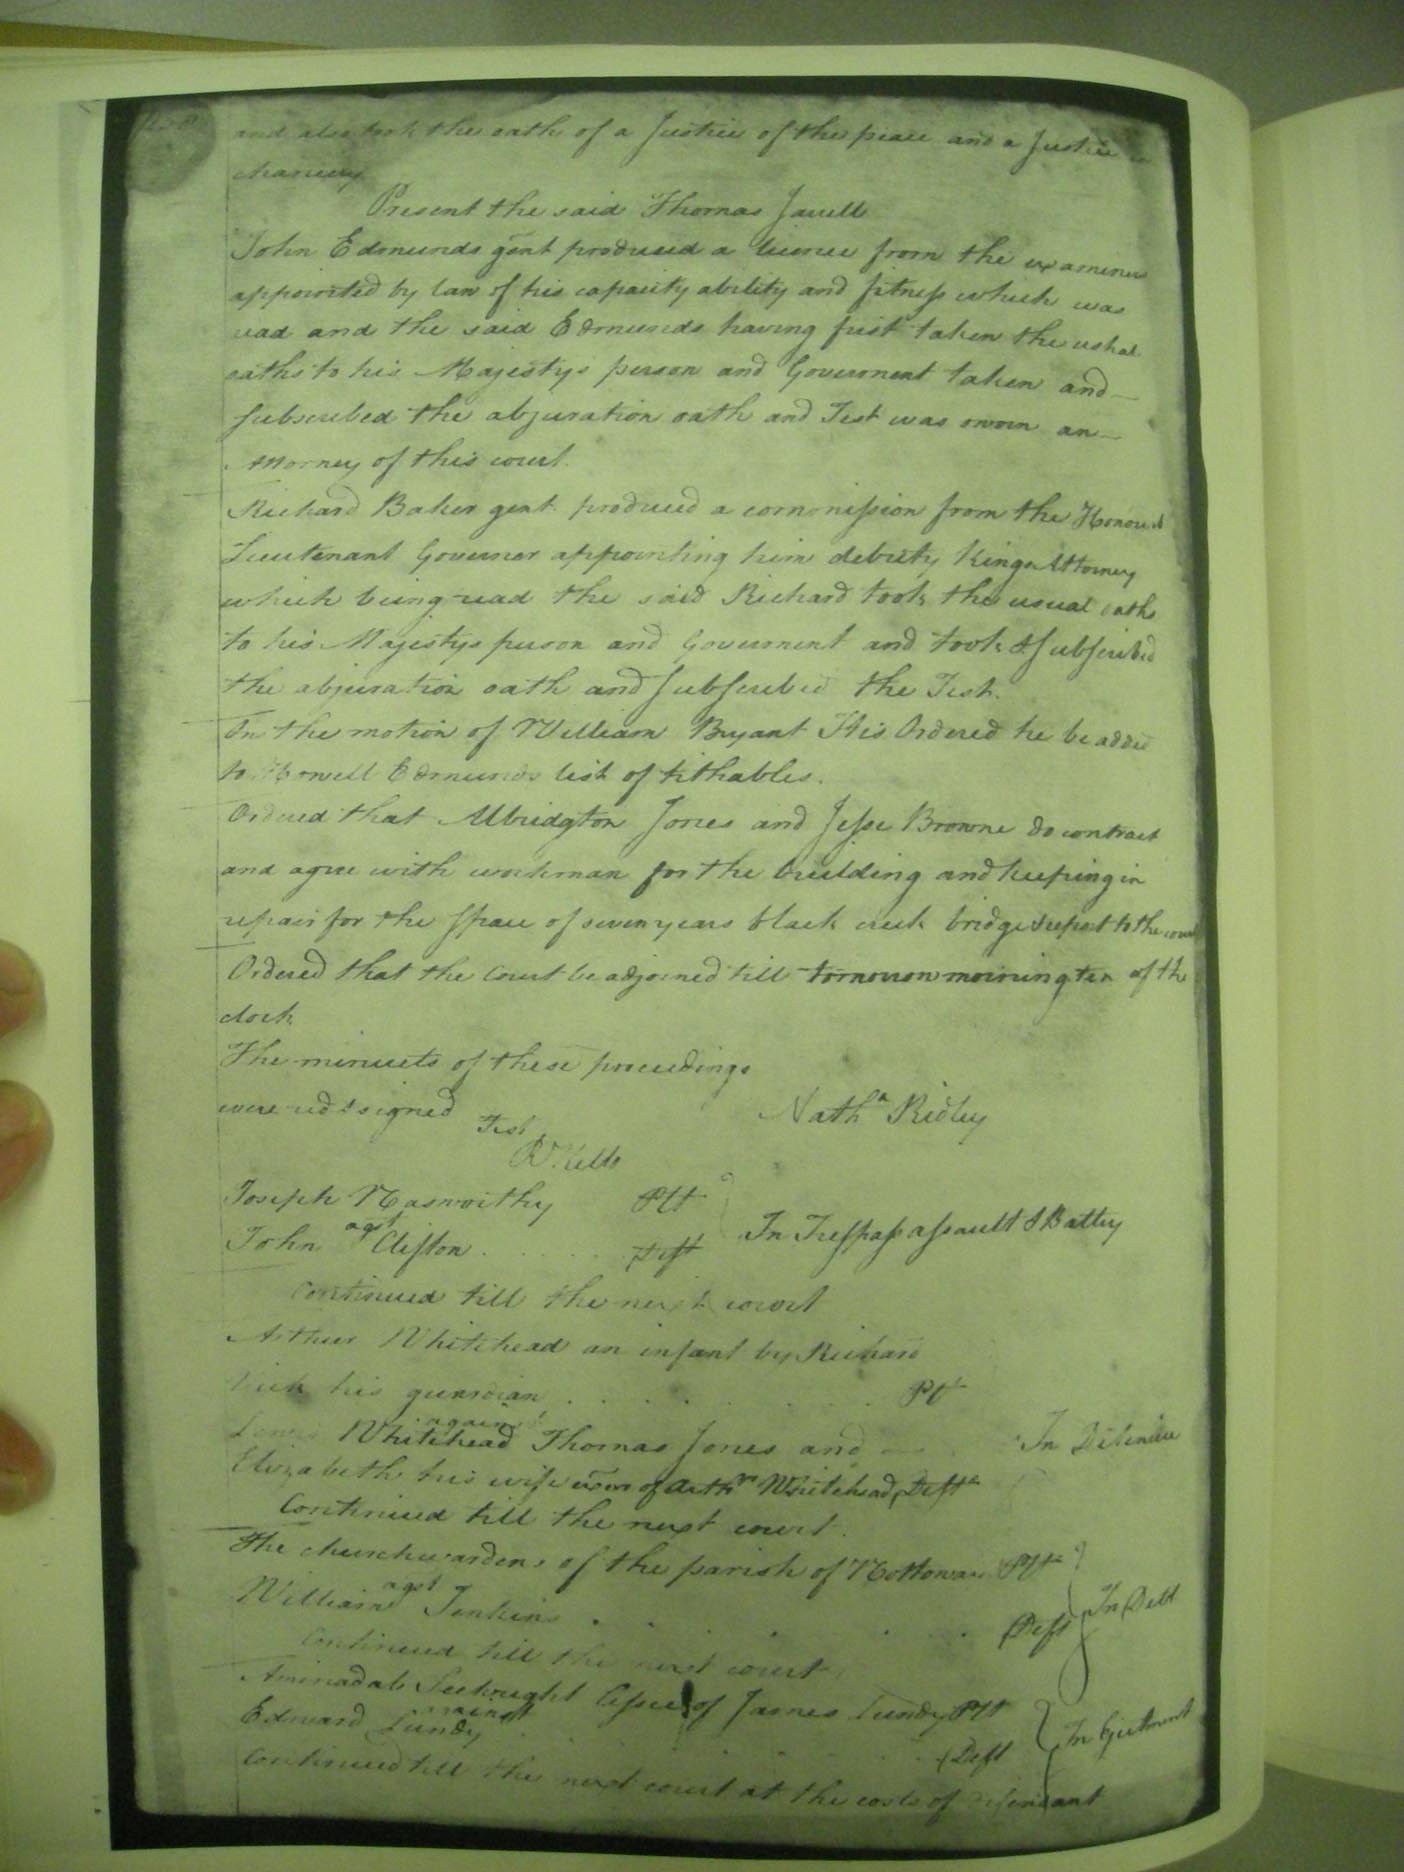 and also took the oath of a Justice of the peace and a Justice in
chancery
Present the said Thomas Jarrell
John Edmunds gent produced a licence from the examiners
appointed by law of his capacity ability and fitness which was
read and the said Edmunds having first taken the usual
oaths to his Majestys person and Government taken and
subscribed the abjuration oath and Test was sworn an
Attorney of this court.
Richard Baker gent. produced a commission from the Honourd
Lieutenant Governor appointing him deputy Kings Attorney
which being read the said Richard took the usual oaths
to his Majestys person and Government and took & subscribed
the abjuration oath and subscribed the Test.
On the motion of William Bryant Itis Ordered he be added
to Howell Edmunds list of tithables.
Ordered that Albridgton Jones and Jesse Browne do contract
and agree with workman for the building and keeping in
repair for the space of seven years black creek bridge & report to the court
Ordered that the Court be adjorned till tomorrow morning ten of the
clock
The minuets of these proceedings
were red & signed
Nathl Ridley
Test
R. Kello
Joseph Nasworthy Plt
agst
John Clifton Deft
In Trespass assault & Battry
Continued till the next court
Arthur Whitehead an infant by Richard
his guardian Plt
against
Whitehead Thomas Jones and
Elizabeth his wife of Arthr Whitehead Defts
In Deteniue
Continued till the next court.
The churchwardens of the parish of Nottoway Plts
agst
William Jenkins Deft
In Debt
Continued till the next court
Aminadab Seekright lessee of James Lundy Plt
against
Edward Lundy Deft
In Ejectment
Continued till the next court at the costs of defendant